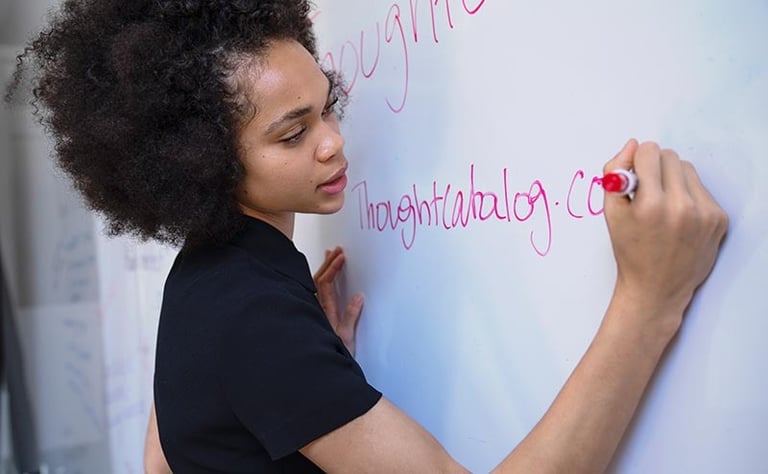 Thought
ThoughtCatalog.co